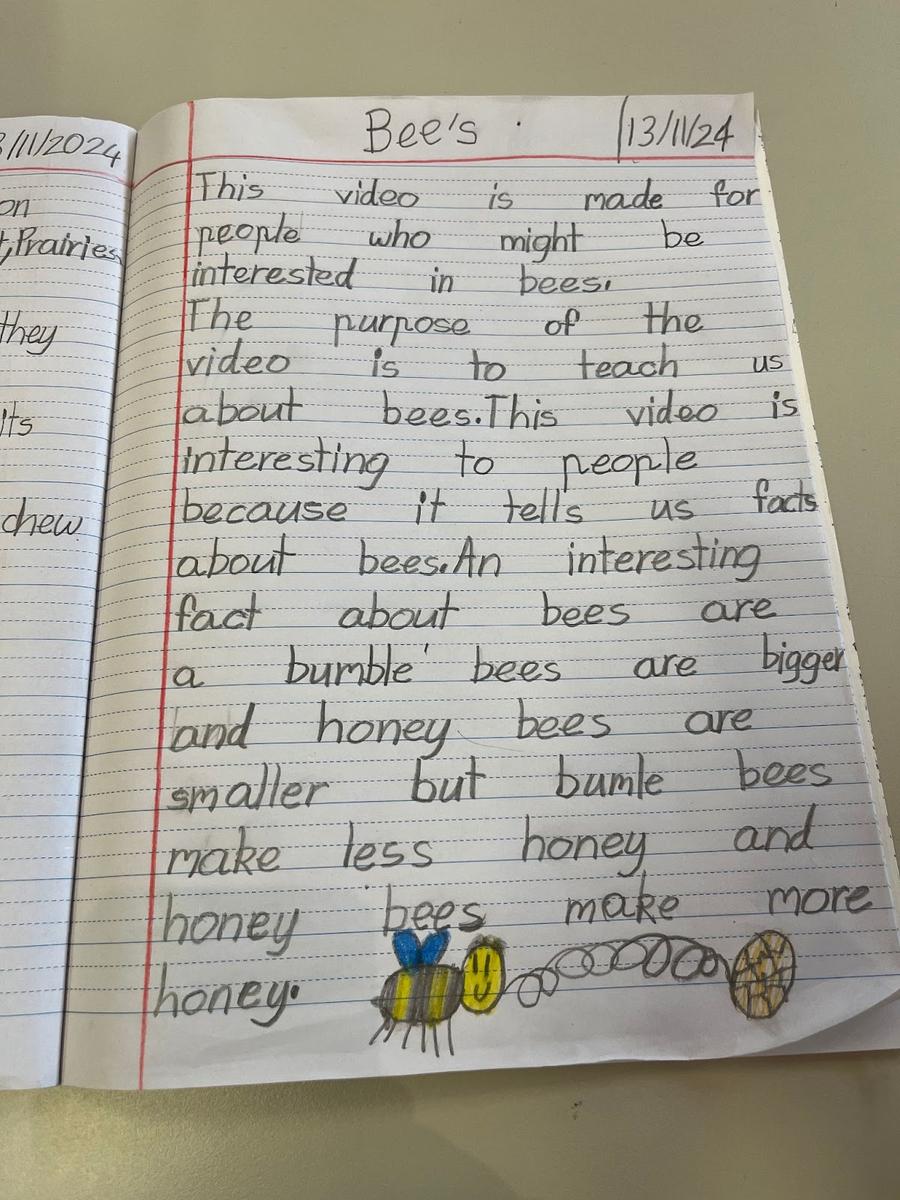 3/11/2024
on
t,Prairies
they
its
chew
Bee's 13/11/24
This video is made for
people who might be
interested in bees.
The purpose of the
video is to teach us
about bees.This video is
interesting to people
because it tells us facts
about bees.An interesting
fact about bees are
a bumble' bees are bigger
and honey bees are
smaller but bumle bees
make less honey and
honey bees make more
honey.